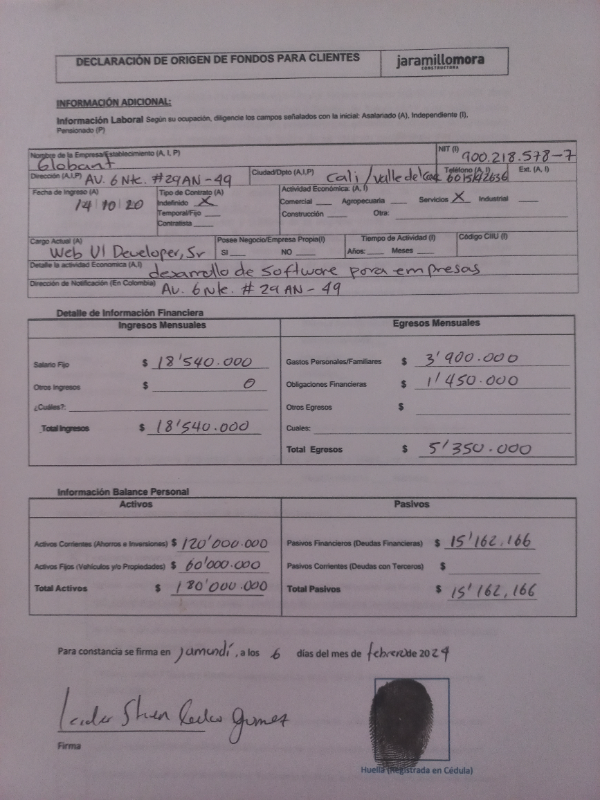 DECLARACIÓN DE ORIGEN DE FONDOS PARA CLIENTES
jaramillomora
CONSTRUCTORA
INFORMACIÓN ADICIONAL:
Información Laboral Según su ocupación, diligencie los campos señalados con la inicial: Asalariado (A), Independiente (I),
Pensionado (P)
Nombre de la Empresa/Establecimiento (A, I, P) Globant NIT (I) 900.218.578-7
Dirección (A,I,P) AV. 6 Nte. #29AN-49 Ciudad/Dpto (A,I,P) Cali /Valle del Teléfono (A, I) Ext. (A, I)
Fecha de Ingreso (A) 14|10|20 Tipo de Contrato (A) Actividad Económica: (A, I)
Indefinido X Comercial ___ Agropecuaria ___ Servicios X Industrial ___
Temporal/Fijo ___ Construcción ___ Otra: ___
Contratista ___
Cargo Actual (A) Web UI Developer, Sr Posee Negocio/Empresa Propia(I) Tiempo de Actividad (I) Código CIIU (I)
SI ___ NO ___ Años: ___ Meses ___
Detalle la actividad Económica (A,I) desarrollo de software para empresas
Dirección de Notificación (En Colombia) Av. 6 Nte. # 29 AN - 49
Detalle de Información Financiera
Ingresos Mensuales Egresos Mensuales
Salario Fijo $ 18'540.000 Gastos Personales/Familiares $ 3'900.000
Otros Ingresos $ 0 Obligaciones Financieras $ 1'450.000
¿Cuáles?: Otros Egresos $
Total Ingresos $ 18'540.000 Cuales:
Total Egresos $ 5'350.000
Información Balance Personal
Activos Pasivos
Activos Corrientes (Ahorros e Inversiones) $ 120'000.000 Pasivos Financieros (Deudas Financieras) $ 15'162,166
Activos Fijos (Vehículos y/o Propiedades) $ 60'000.000 Pasivos Corrientes (Deudas con Terceros) $
Total Activos $ 180'000.000 Total Pasivos $ 15'162,166
Para constancia se firma en Jamundí, a los 6 días del mes de febrero de 2024
Firma
Huella (Registrada en Cédula)